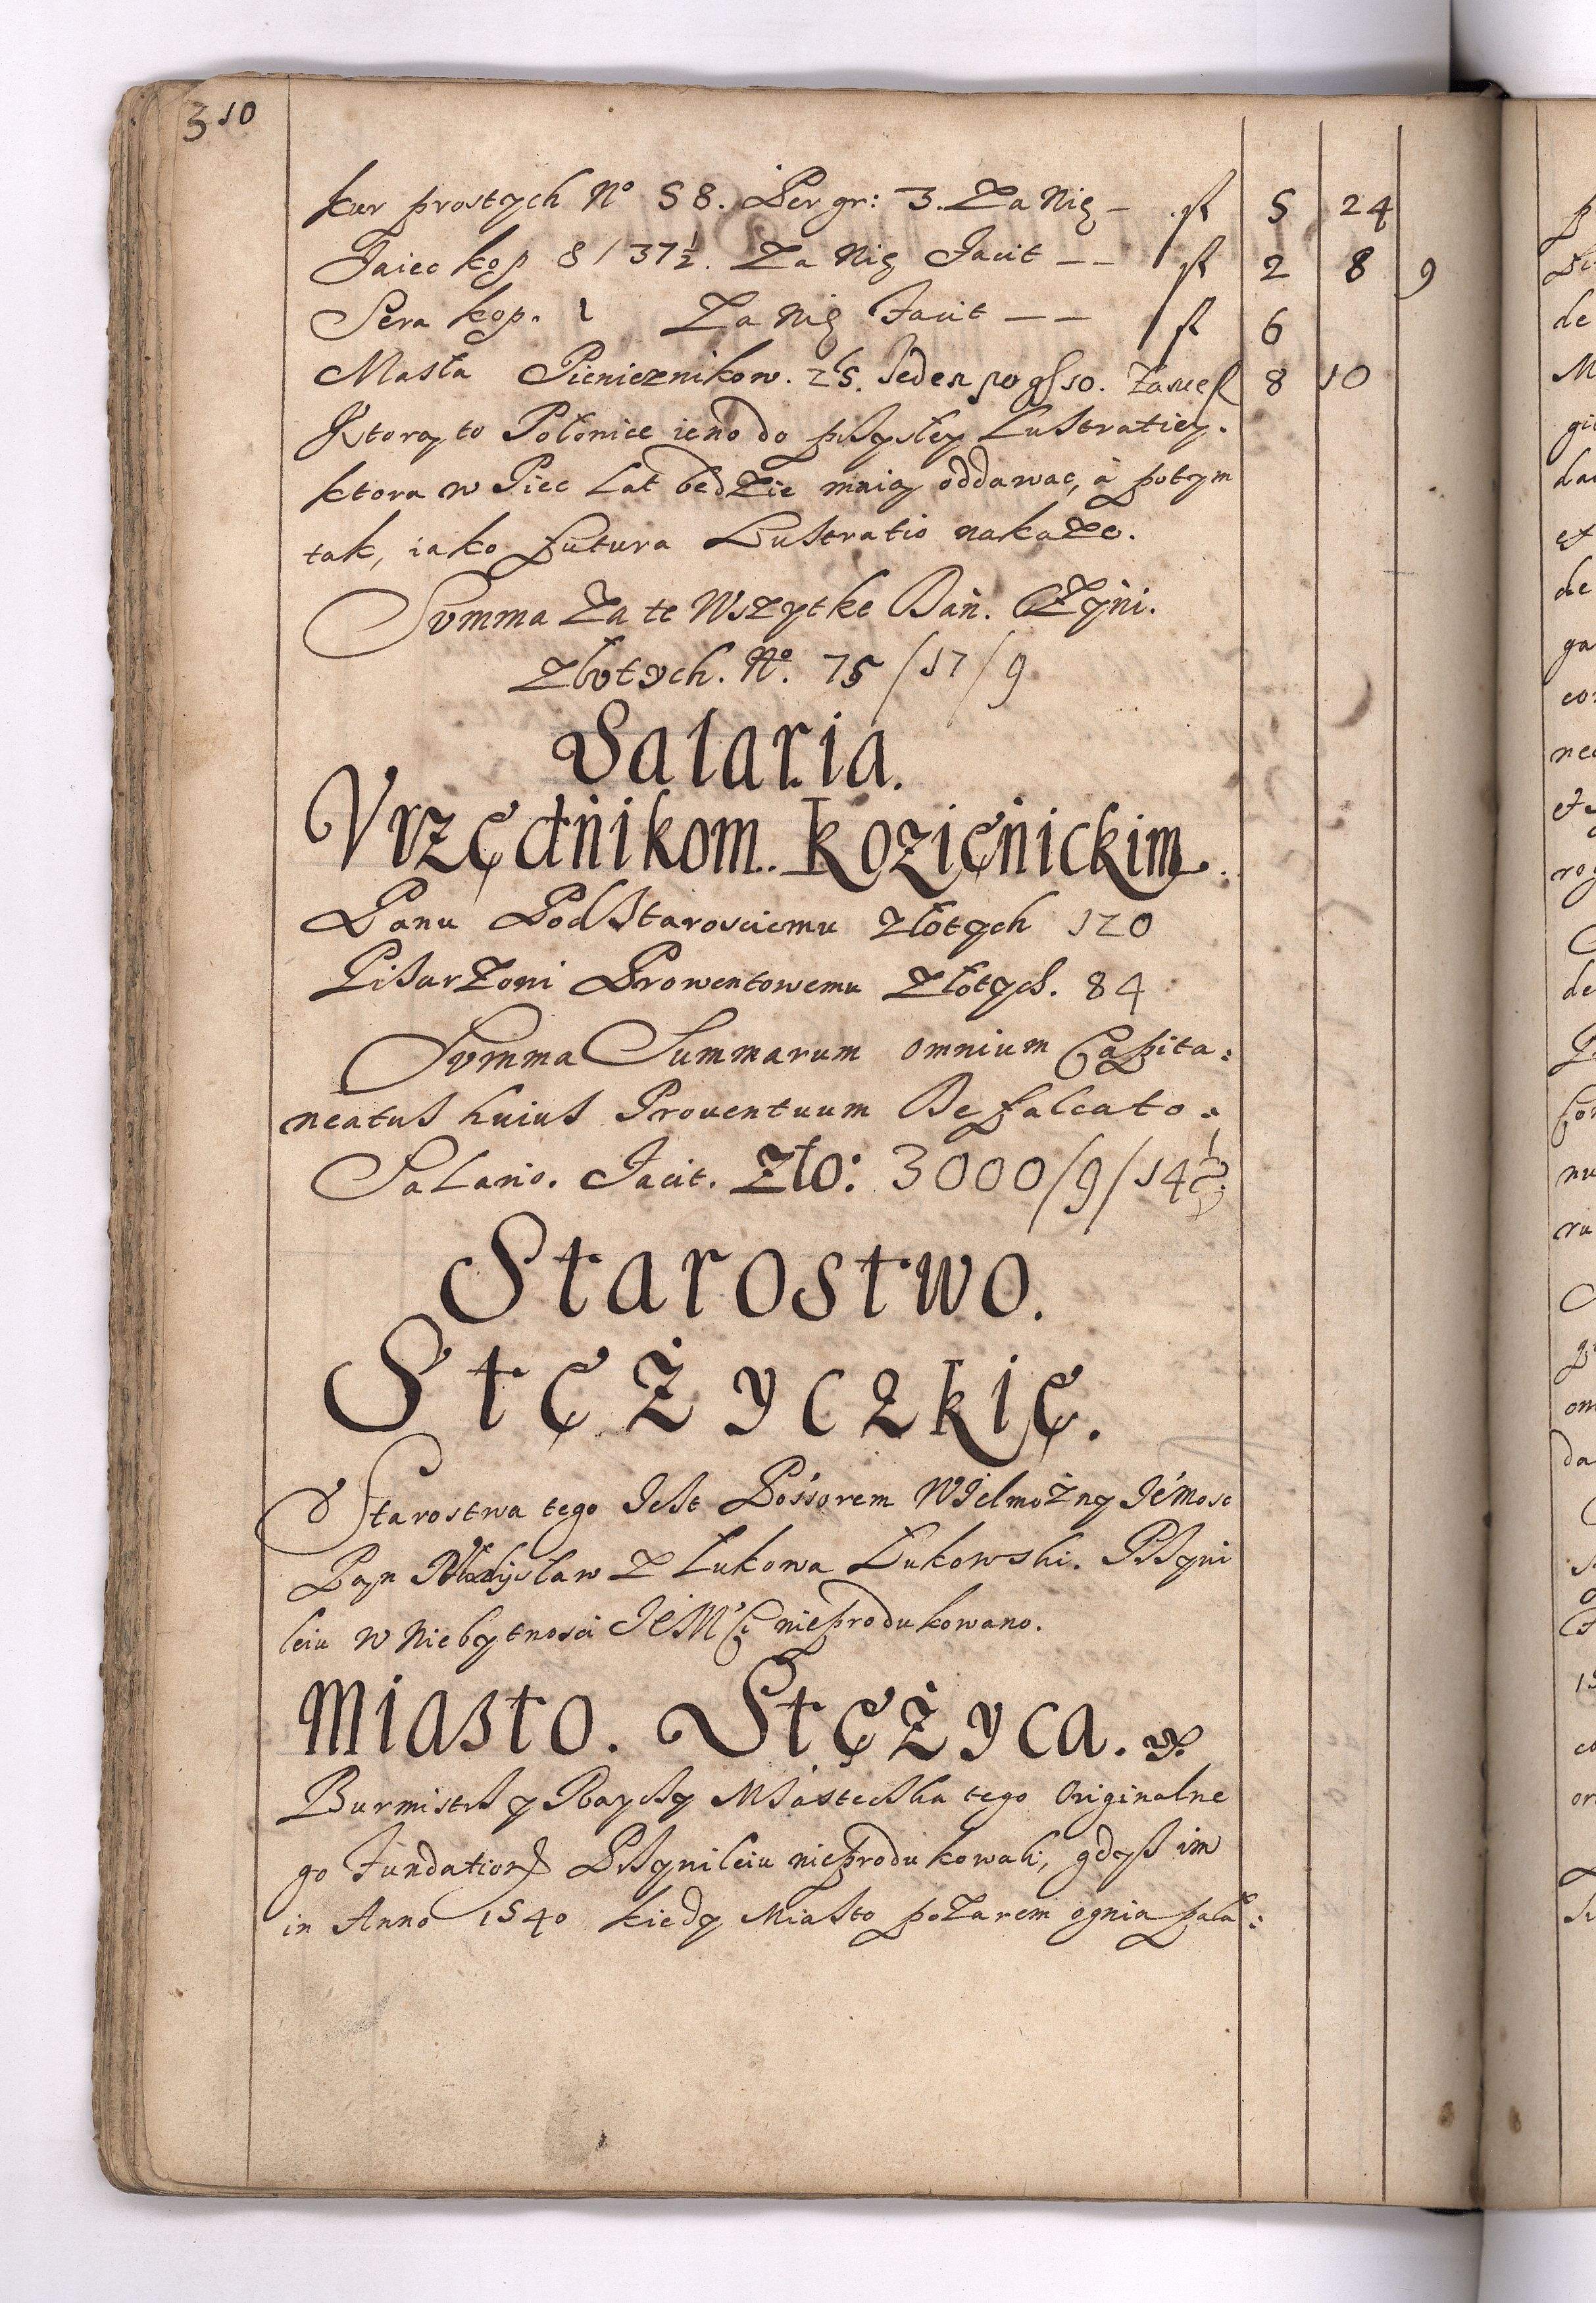 310
kur prostych No 58. Per gr: 3. Za Nię — fl 5 24
Jaiec kop 8 / 37½. Za Nię Facit — — fl 2 8 9
Sera kop. 1 Za Nię Facit — — fl 6
Masła Pienieznikow. 25. Jeden po gſ 10. 8 10
Ktorą to Połonice ieno do pßyßłey Lustratiey.
ktora w Piec Lat będzie mnią oddawac, à potym
tak, iako futura Lustratio nakaze.
Summa Za te Wszytke Dań. Czÿni.
Złotych. No. 75 / 17 / 9
Salaria.
Vrzędnikom. Kozięnickim.
Panu Podstarosciemu złotych 120
Pisarzowi Prowentowemu złotych. 84
Summa Summarum omnium Capita:
neatus huius Prouentuum Defalcato:
Salario. Facit. Zło: 3000 / 9 / 14½
Starostwo.
Stężyczkię.
Starostwa tego Jest Possorem Wielmożny Jemosc
Pan Władysław z Łukowa Łukowski. Pßywi
leiu w Niebytnosci JeMSci nieprodukowano.
Miasto. Stężyca.
Burmistß y Rayczy Miasteczka tego Originalne
go Fundationis Pßywileiu nieprodukowali, gdyß im
in Anno 1540 kiedy Miasto pozarem ognia pała: